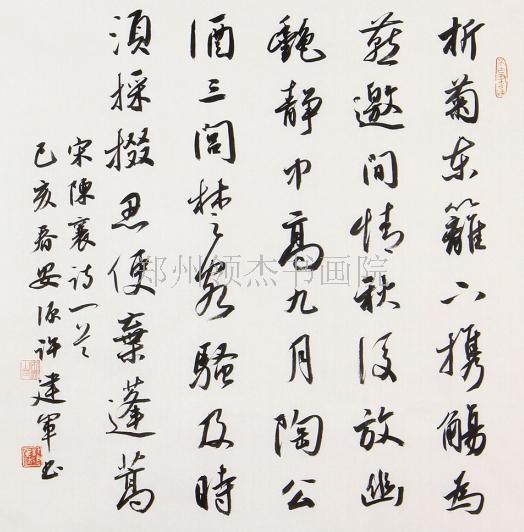 折菊東籬下携觴為
爾邀间情秋後放幽
艷静中高九月陶公
酒三閭楚客騷及時
須採掇忍便棄蓬蒿
宋陳襄诗一首
己亥春安源许建軍书
郑州颂杰书画院